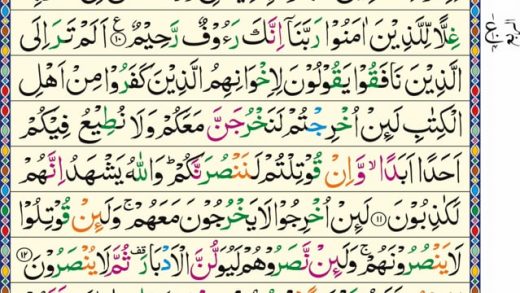 غِلًّا لِّلَّذِیْنَ اٰمَنُوْا رَبَّنَاۤ اِنَّكَ رَءُوْفٌ رَّحِیْمٌ ۠ ۱۰ اَلَمْ تَرَ اِلَی
الَّذِیْنَ نَافَقُوْا یَقُوْلُوْنَ لِاِخْوَانِهِمُ الَّذِیْنَ كَفَرُوْا مِنْ اَهْلِ
الْكِتٰبِ لَىِٕنْ اُخْرِجْتُمْ لَنَخْرُجَنَّ مَعَكُمْ وَلَا نُطِیْعُ فِیْكُمْ
اَحَدًا اَبَدًا ۙ وَّاِنْ قُوْتِلْتُمْ لَنَنْصُرَنَّكُمْ ؕ وَاللّٰهُ یَشْهَدُ اِنَّهُمْ
لَكٰذِبُوْنَ ۱۱ لَىِٕنْ اُخْرِجُوْا لَا یَخْرُجُوْنَ مَعَهُمْ ۚ وَلَىِٕنْ قُوْتِلُوْا
لَا یَنْصُرُوْنَهُمْ ۚ وَلَىِٕنْ نَّصَرُوْهُمْ لَیُوَلُّنَّ الْاَدْبَارَ ۫ ثُمَّ لَا یُنْصَرُوْنَ ۱۲